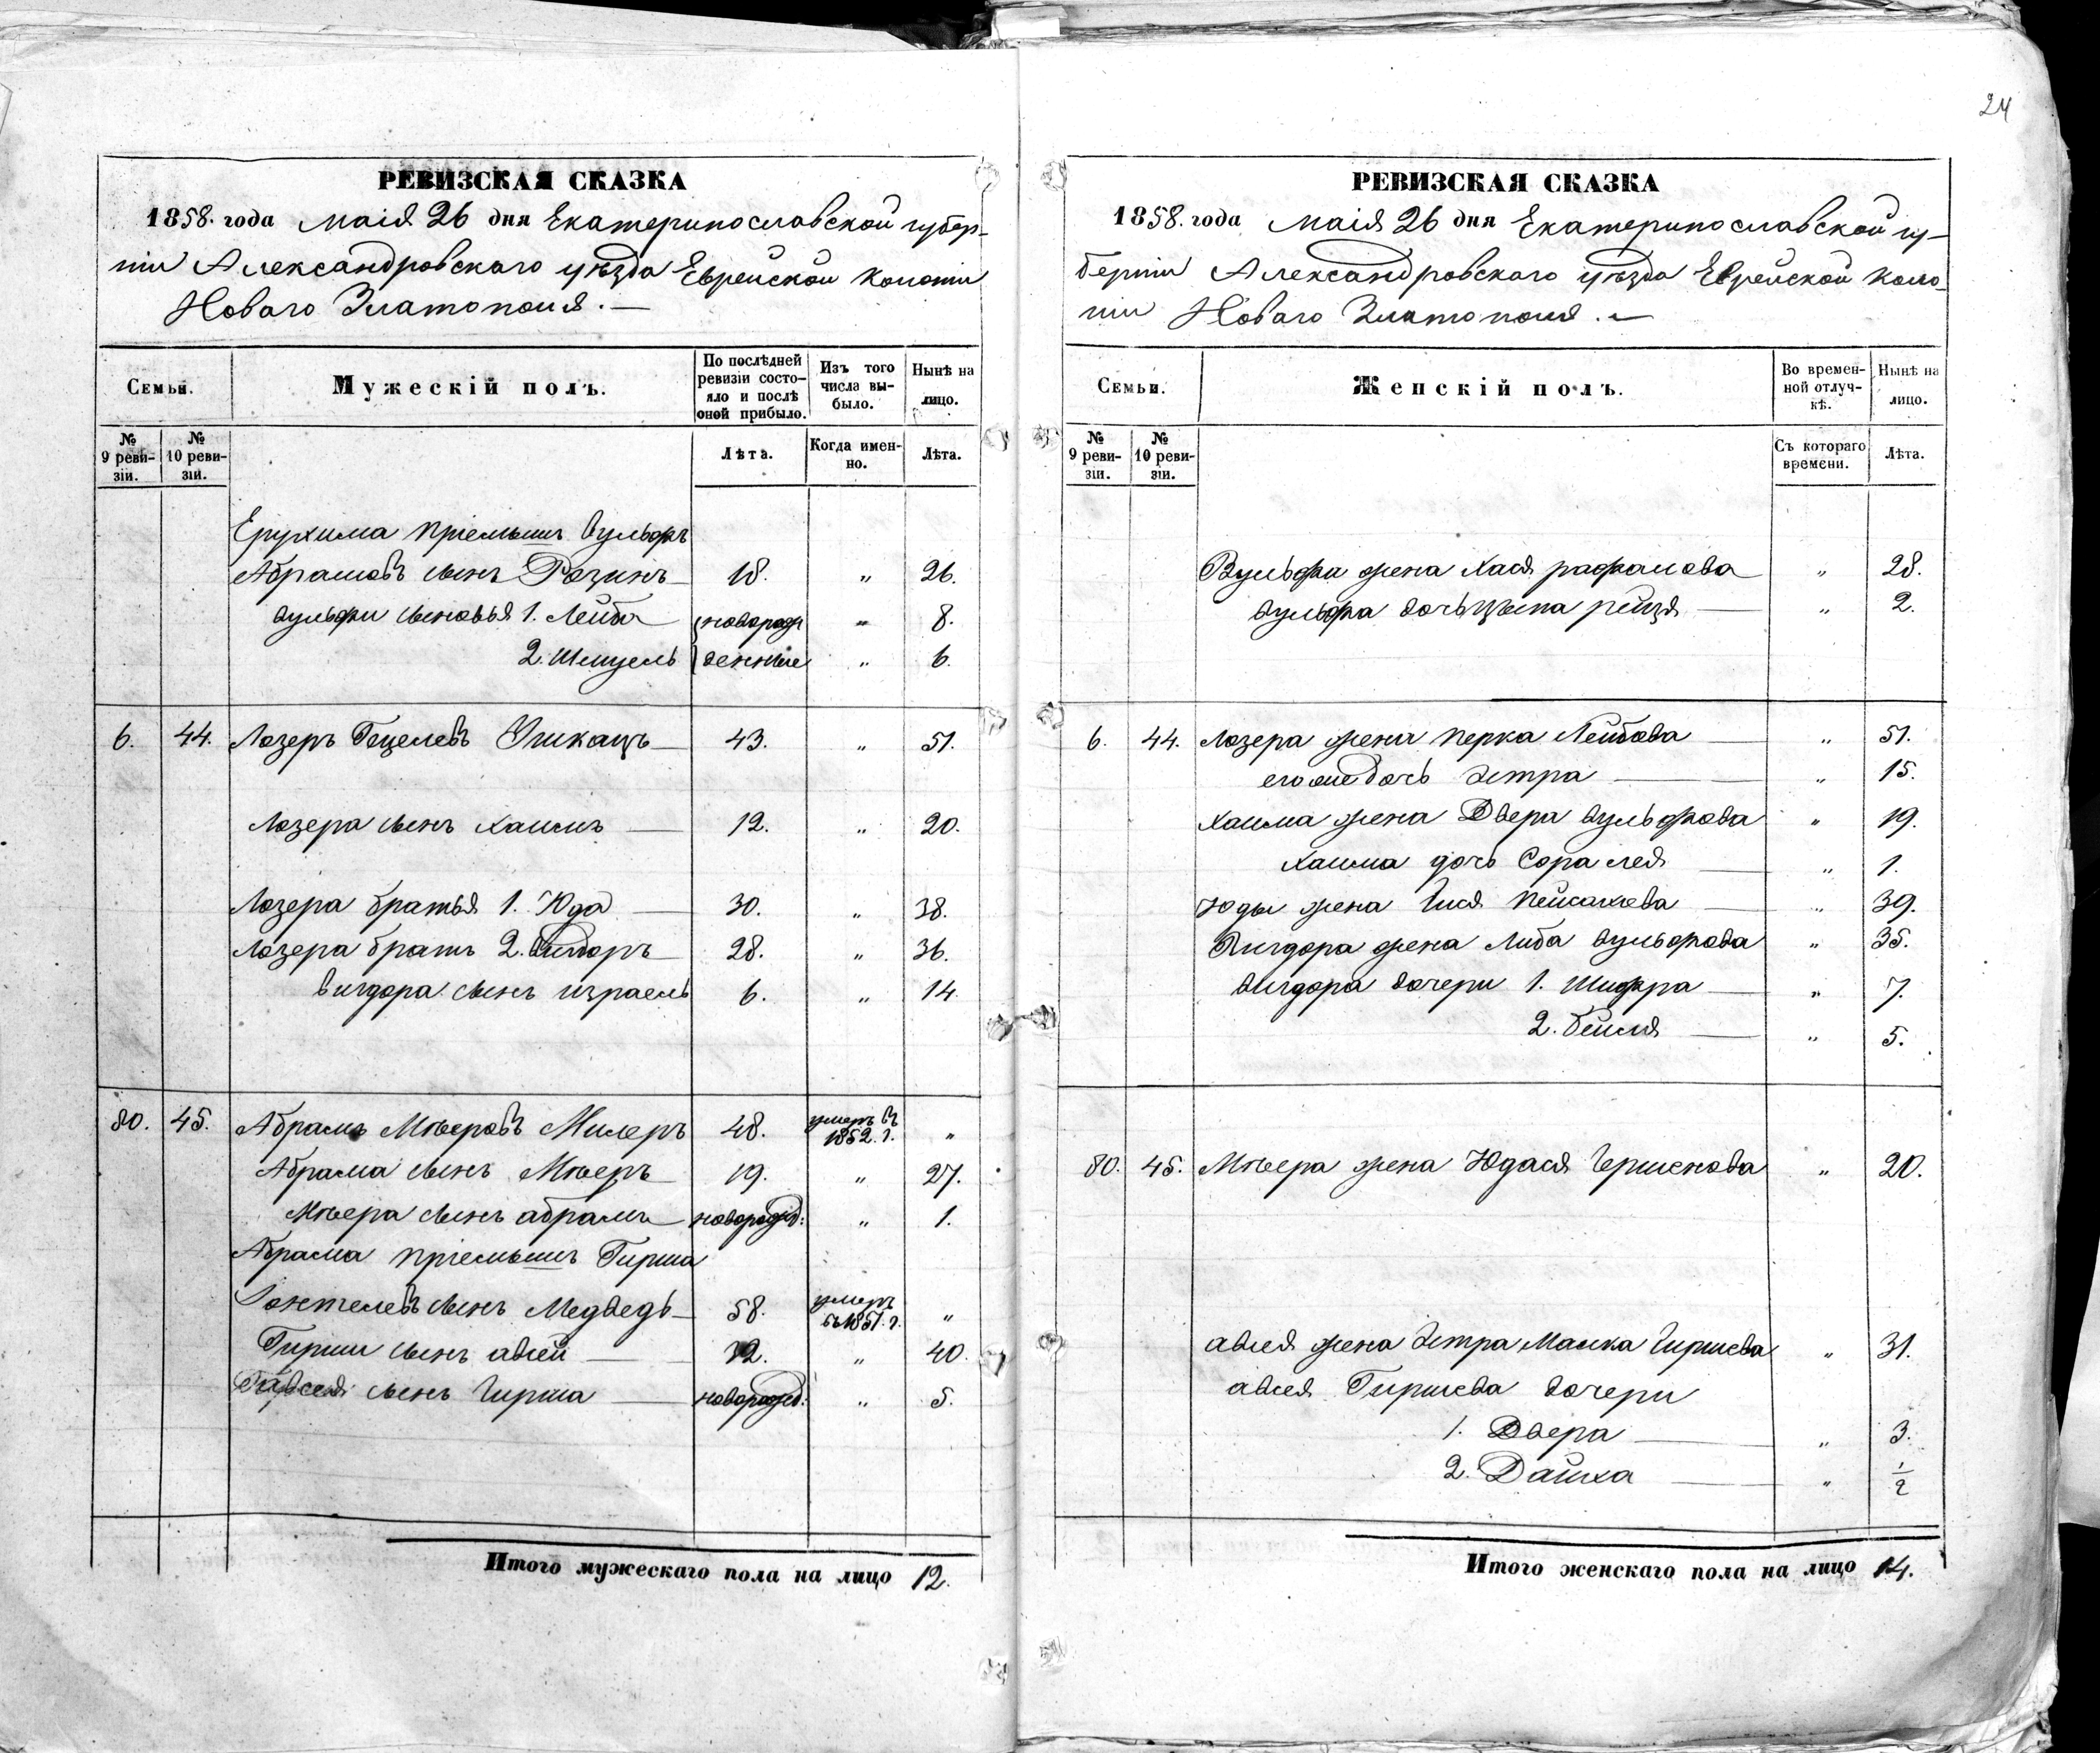 24
РЕВИЗСКАЯ СКАЗКА
1858. года Маія 26 дня Екатеринославской губер-
ніи Александровскаго уѣзда Еврейской колоніи
Новаго Златополя. —
Семьи.
Мужескій полъ.
По послѣдней ревизіи состо-яло и послѣ оной прибыло.
Изъ того числа вы-было.
Нынѣ на лицо.
№ 9 реви-зіи.
№ 10 реви-зіи.
Лѣта.
Когда имен-но.
Лѣта.
Ерухима пріемышъ Вульфъ
Абрамовъ сынъ Розинъ 18. " 26.
Вульфи сыновья 1. Лейба новорож " 8.
2. Шмуель денные " 6.
6. 44. Лозеръ Гецелевъ 43. " 51.
Лозера сынъ Хаимъ 12. " 20.
Лозера братья 1. Юда 30. " 38.
Лозера братъ 2. Вигдоръ 28. " 36.
Вигдора сынъ Израель 6. " 14
80. 45. Абрамъ Мѣеровъ Милеръ 48. умеръ въ 1852. г. "
Абрама сынъ Мѣеръ 19. " 27.
Мѣера сынъ Абрамъ новорожд: " 1.
Абрама пріемышъ Гирша
сынъ Медведь 58. умеръ въ 1851. г. "
Гирши сынъ Авсей 32. " 40.
Авсея сынъ Гирша новорожд: " 5.
Итого мужескаго пола на лицо 12.
РЕВИЗСКАЯ СКАЗКА
1858. года Маія 26 дня Екатеринославской гу-
берніи Александровскаго уѣзда Еврейской коло-
ніи Новаго Златополя. —
Семьи.
Женскій полъ.
Во времен-ной отлуч-кѣ.
Нынѣ на лицо.
№ 9 реви-зіи.
№ 10 реви-зіи.
Съ котораго времени.
Лѣта.
Вульфи жена Хася Рафалова " 28.
Вульфа дочь Цыпа Рейзя " 2.
6. 44. Лозера жена Перка Лейбова " 51.
его же дочь Эстра " 15.
Хаима жена Двера Вульфова " 19.
Хаима дочь Сора Лея " 1.
Юды жена Гися Пейсахева " 39.
Вигдора жена Либа Вульфова " 35.
Вигдора дочери 1. Шифра " 7.
2. Бейля " 5.
80. 45. Мѣера жена Юдася Гершкова " 20.
Авсея жена Эстра Малка Гиршева " 31.
Авсея Гиршева дочери
1. Двера " 3.
2. Дайха " 1/2
Итого женскаго пола на лицо 14.